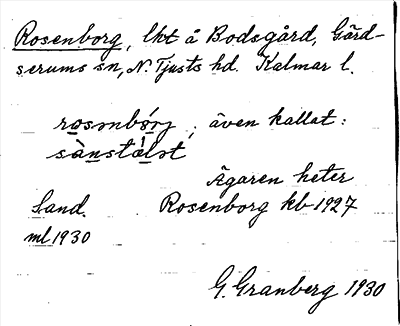 Rosenborg, lht å Bodsgård, Gärd-
serums sn, N. Tjusts hd. Kalmar l.
rosonbórj, även kallat:
sànstälət
Ägaren heter
Sand. Rosenborg kb 1927
ml 1930
G. Granberg 1930